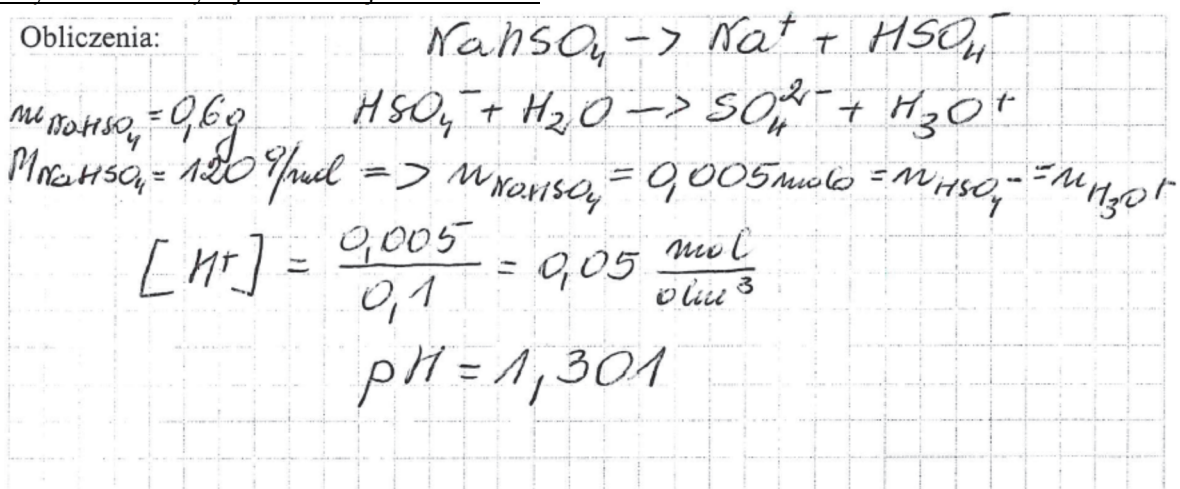 Obliczenia:
NaHSO₄ -> Na⁺ + HSO₄⁻
m NaHSO₄ = 0,6g
HSO₄⁻ + H₂O -> SO₄²⁻ + H₃O⁺
M NaHSO₄ = 120 g/mol => n NaHSO₄ = 0,005 mola = n HSO₄⁻ = n H₃O⁺
[H⁺] = 0,005/0,1 = 0,05 mol/dm³
pH = 1,301